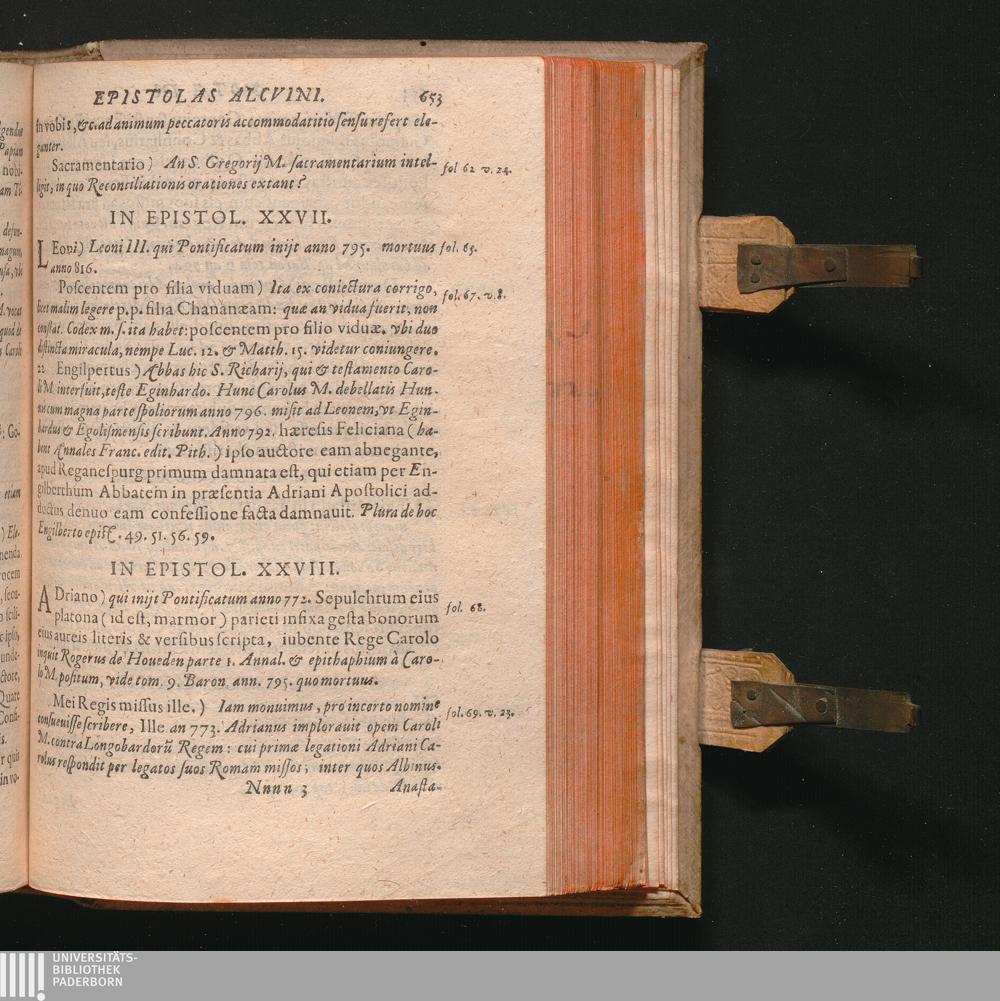 EPISTOLAS ALCVINI. 653
in vobis, &c. ad animum peccatoris accommodatitio sensu refert ele-
ganter.
Sacramentario) An S. Gregorij M. sacramentarium intel- fol 62 v. 24.
ligit, in quo Reconciliationis orationes extant?
IN EPISTOL. XXVII.
LEoni) Leoni III. qui Pontificatum inijt anno 795. mortuus fol. 65.
anno 816.
Poscentem pro filia viduam) Ita ex coniectura corrigo, fol. 67. v. 8.
licet malim legere p.p. filia Chananæam: quæ an vidua fuerit, non
constat. Codex m. s. ita habet: poscentem pro filio viduæ. vbi duo
distincta miracula, nempe Luc. 12. & Matth. 15. videtur coniungere.
22 Engilpertus) Abbas hic S. Richarij, qui & testamento Caro-
li M. interfuit, teste Eginhardo. Hunc Carolus M. debellatis Hun-
nis cum magna parte spoliorum anno 796. misit ad Leonem, vt Egin-
hardus & Egolismensis scribunt. Anno 792. hæresis Feliciana (ha-
bent Annales Franc. edit. Pith.) ipso auctore eam abnegante,
apud Reganespurg primum damnata est, qui etiam per En-
gilberthum Abbatem in præsentia Adriani Apostolici ad-
ductus denuo eam confessione facta damnauit. Plura de hoc
Engilberto epist. 49. 51. 56. 59.
IN EPISTOL. XXVIII.
ADriano) qui inijt Pontificatum anno 772. Sepulchrum eius fol. 68.
platona (id est, marmor) parieti infixa gesta bonorum
eius aureis literis & versibus scripta, iubente Rege Carolo
inquit Rogerus de Houeden parte 1. Annal. & epithaphium à Caro-
lo M. positum, vide tom. 9. Baron. ann. 795. quo mortuus.
Mei Regis missus ille.) Iam monuimus, pro incerto nomine fol. 69. v. 23.
consueuisse scribere, Ille an 773. Adrianus implorauit opem Caroli
M. contra Longobardorũ Regem: cui primæ legationi Adriani Ca-
rolus respondit per legatos suos Romam missos, inter quos Albinus.
Nnnn 3 Anasta-
UNIVERSITÄTS-
BIBLIOTHEK
PADERBORN